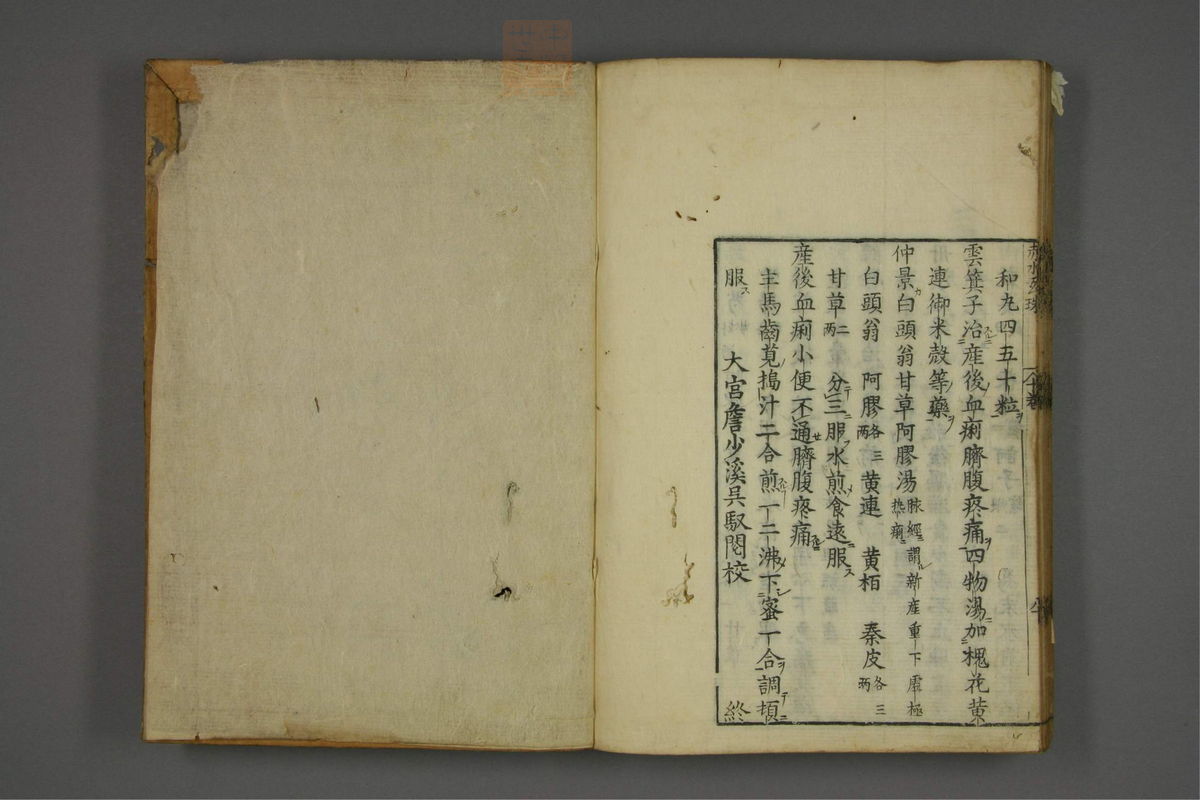 和丸四五十粒ヲ
雲箕子治産後血痢臍腹疼痛四物湯加槐花黄
連御米殻等藥
仲景白頭翁甘草阿膠湯 脉經謂新産重下虚極
熱痢
白頭翁 阿膠各三兩 黄連 黄栢 秦皮各三兩
甘草二兩 分三服水煎食遠服
産後血痢小便不通臍腹疼痛
生馬齒莧搗汁二合煎一二沸下蜜一合調頓
服
大宮詹少溪吳馭閲校
終